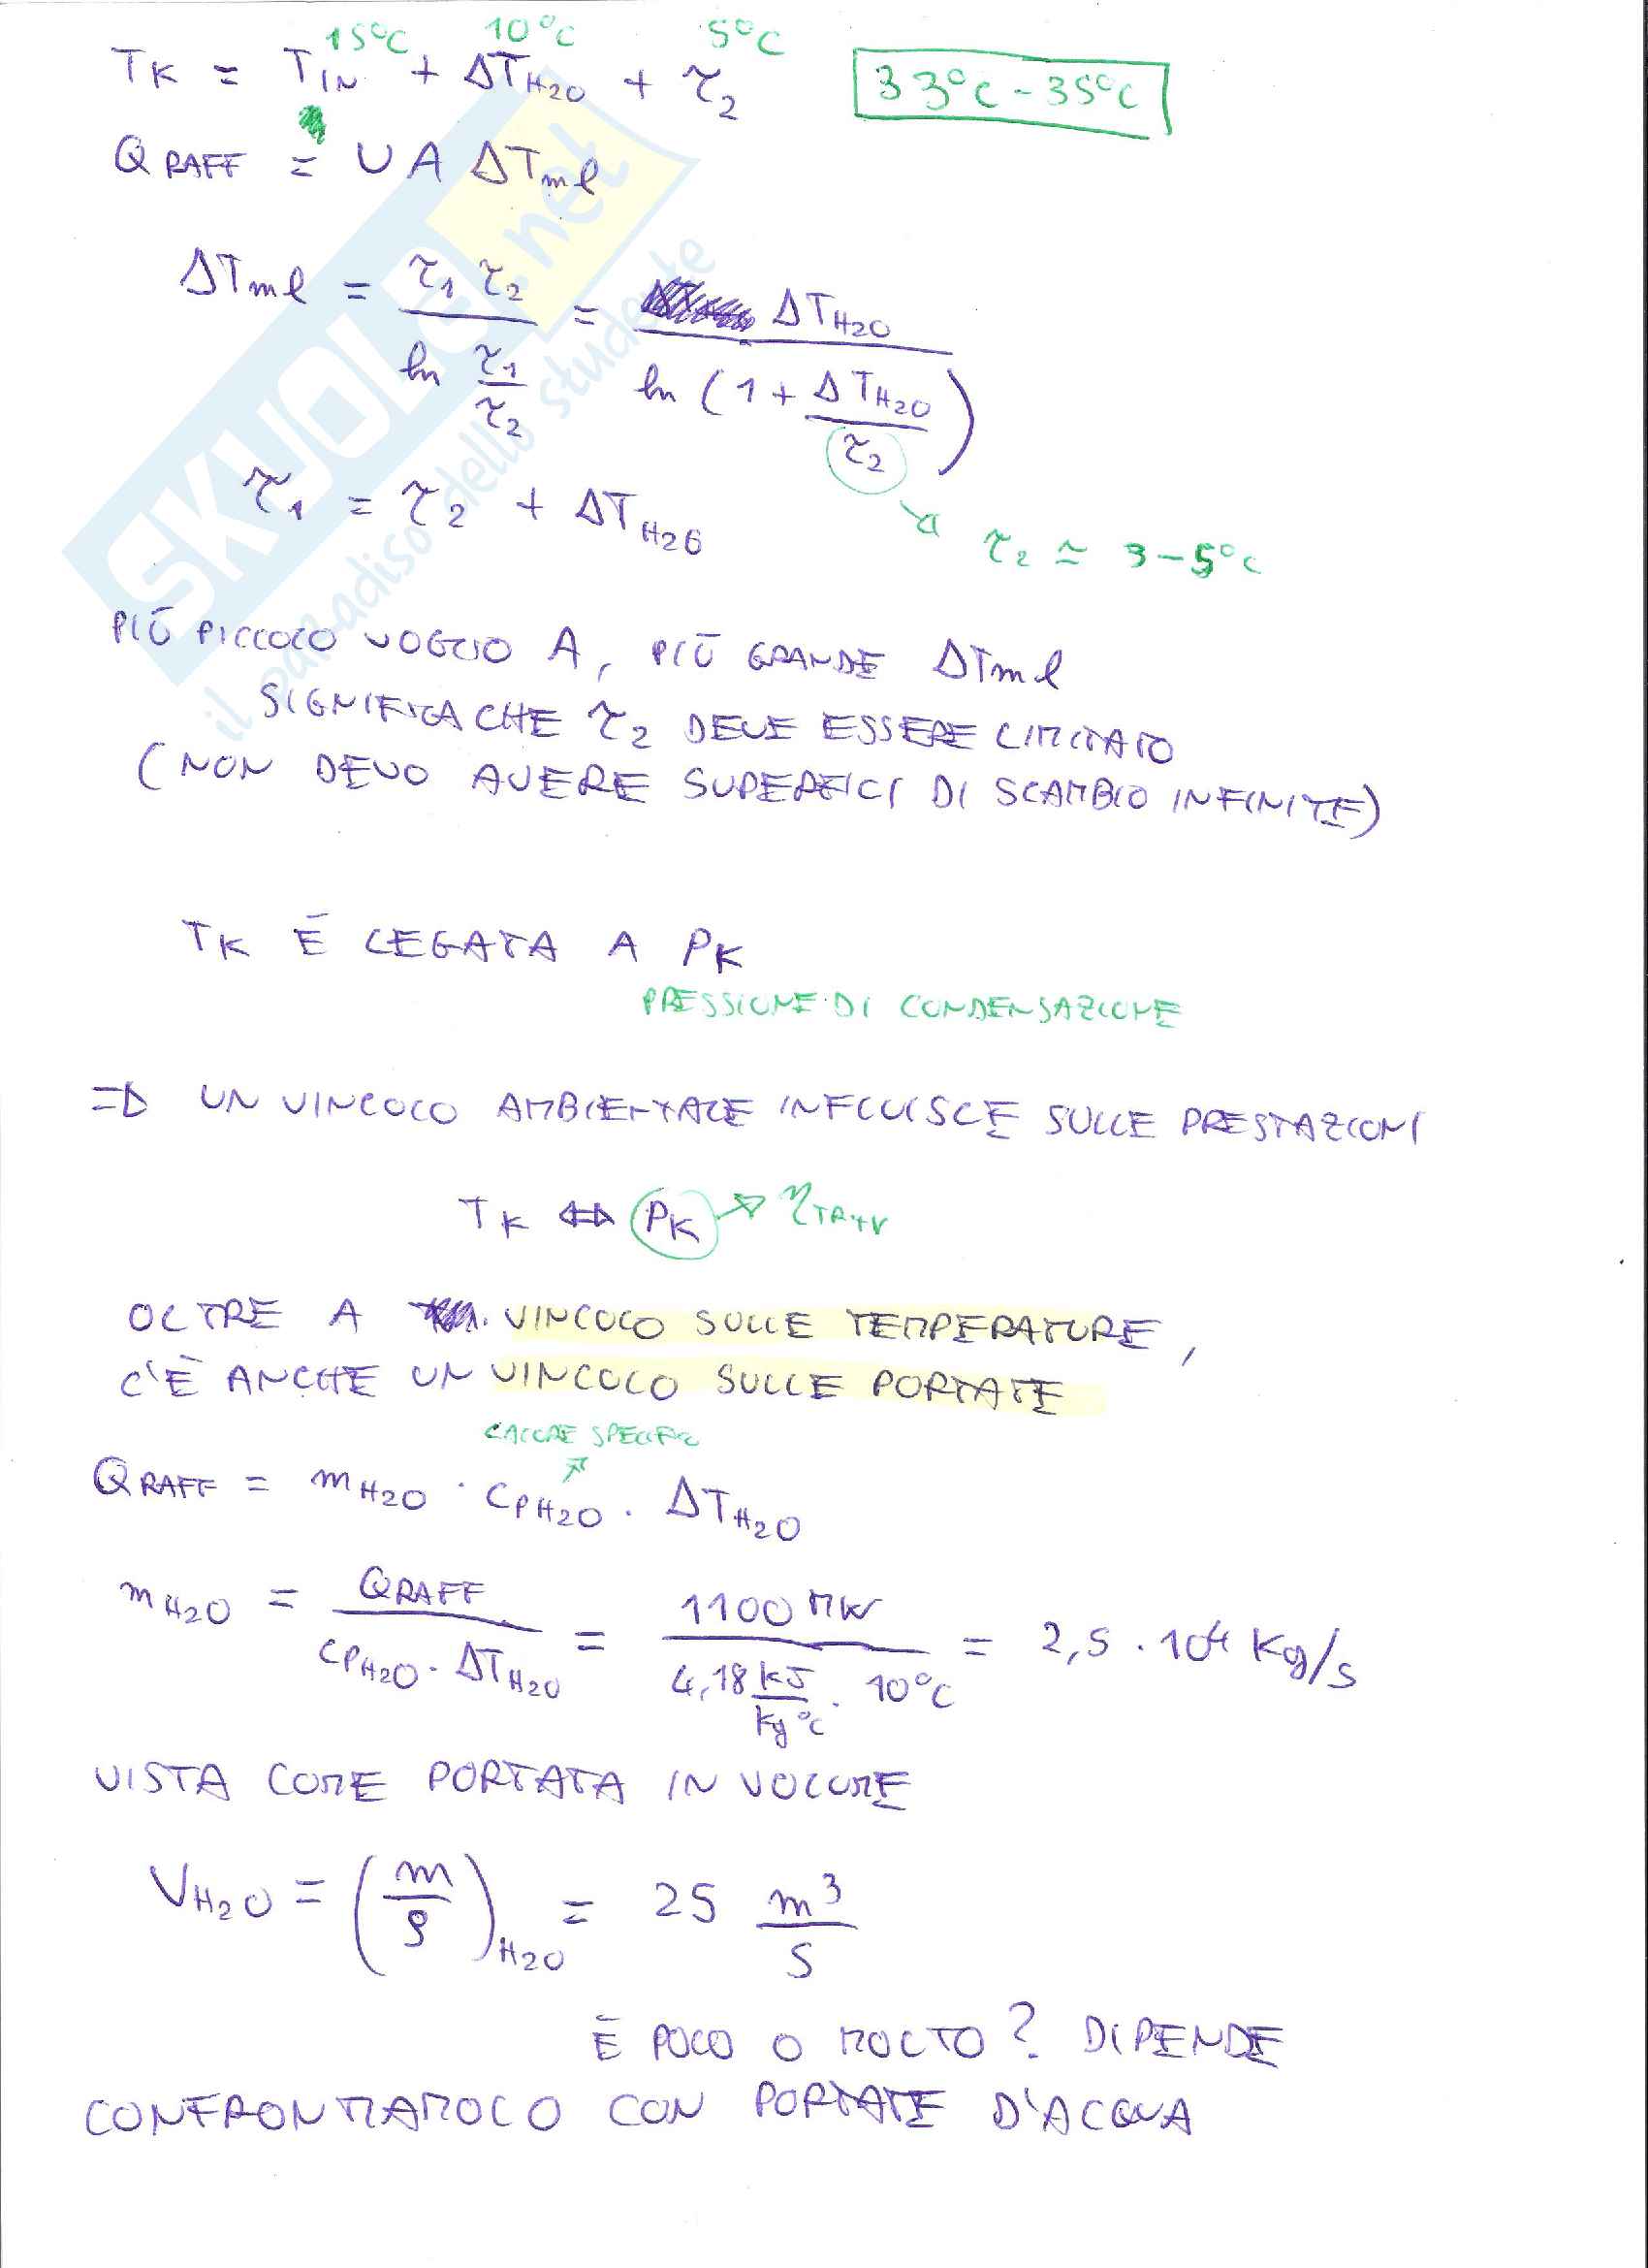 15°C 10°C 5°C
TK = TIN + ΔTH2O + τ2 33°C - 35°C
QRAFF = U A ΔTml
ΔTml = τ1 τ2 / ln τ1/τ2 = ΔTH2O / ln (1 + ΔTH2O/τ2)
τ1 = τ2 + ΔTH2O
τ2 ≃ 3-5°C
PIÙ PICCOLO VOGLIO A, PIÙ GRANDE ΔTml
SIGNIFICA CHE τ2 DEVE ESSERE LIMITATO
(NON DEVO AVERE SUPERFICI DI SCAMBIO INFINITE)
TK È LEGATA A PK
PRESSIONE DI CONDENSAZIONE
=> UN VINCOLO AMBIENTALE INFLUISCE SULLE PRESTAZIONI
TK <=> PK → η
OLTRE A VINCOLO SULLE TEMPERATURE,
C'È ANCHE UN VINCOLO SULLE PORTATE
CALORE SPECIFIC
QRAFF = mH2O · CPH2O · ΔTH2O
mH2O = QRAFF / CPH2O · ΔTH2O = 1100 MW / 4,18 kJ/kg°C · 10°C = 2,5 · 10^4 Kg/s
VISTA COME PORTATA IN VOLUME
VH2O = (m/ρ)H2O = 25 m³/s
È POCO O MOLTO? DIPENDE
CONFRONTIAMOLO CON PORTATE D'ACQUA
SKUOLA.net
il paradiso dello studente